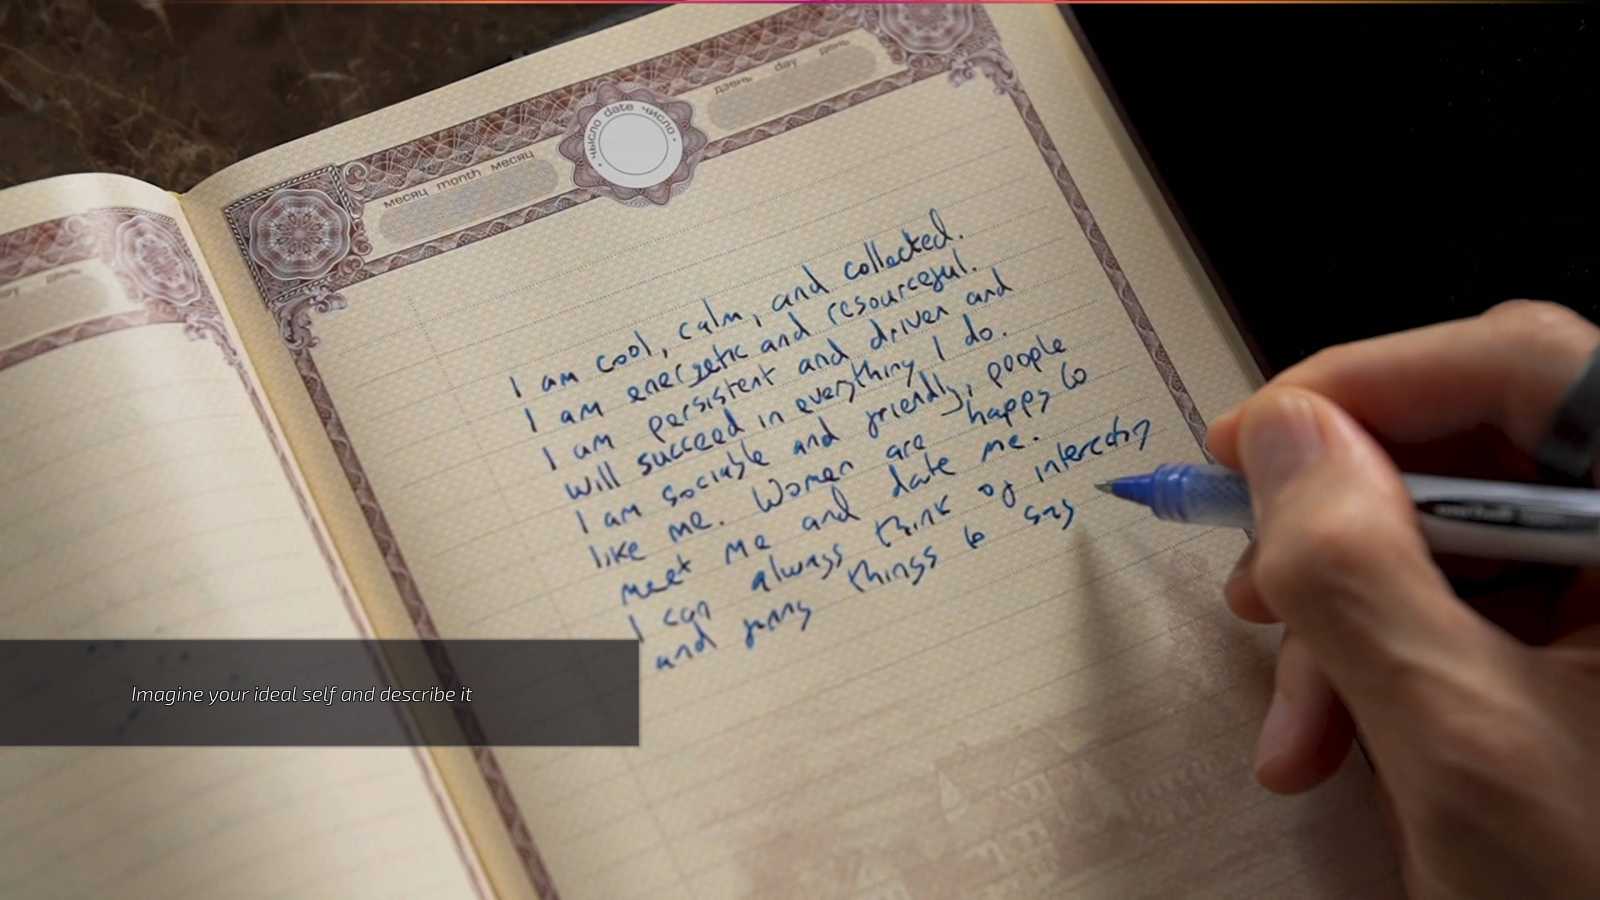 месяц month месяц
чысло date число
дзень day день
I am cool, calm, and collected.
I am energetic and resourceful.
I am persistent and driven and
will succeed in everything I do.
I am sociable and friendly, people
like me. Women are happy to
meet me and date me.
I can always think of interesting
and funny things to say
Imagine your ideal self and describe it